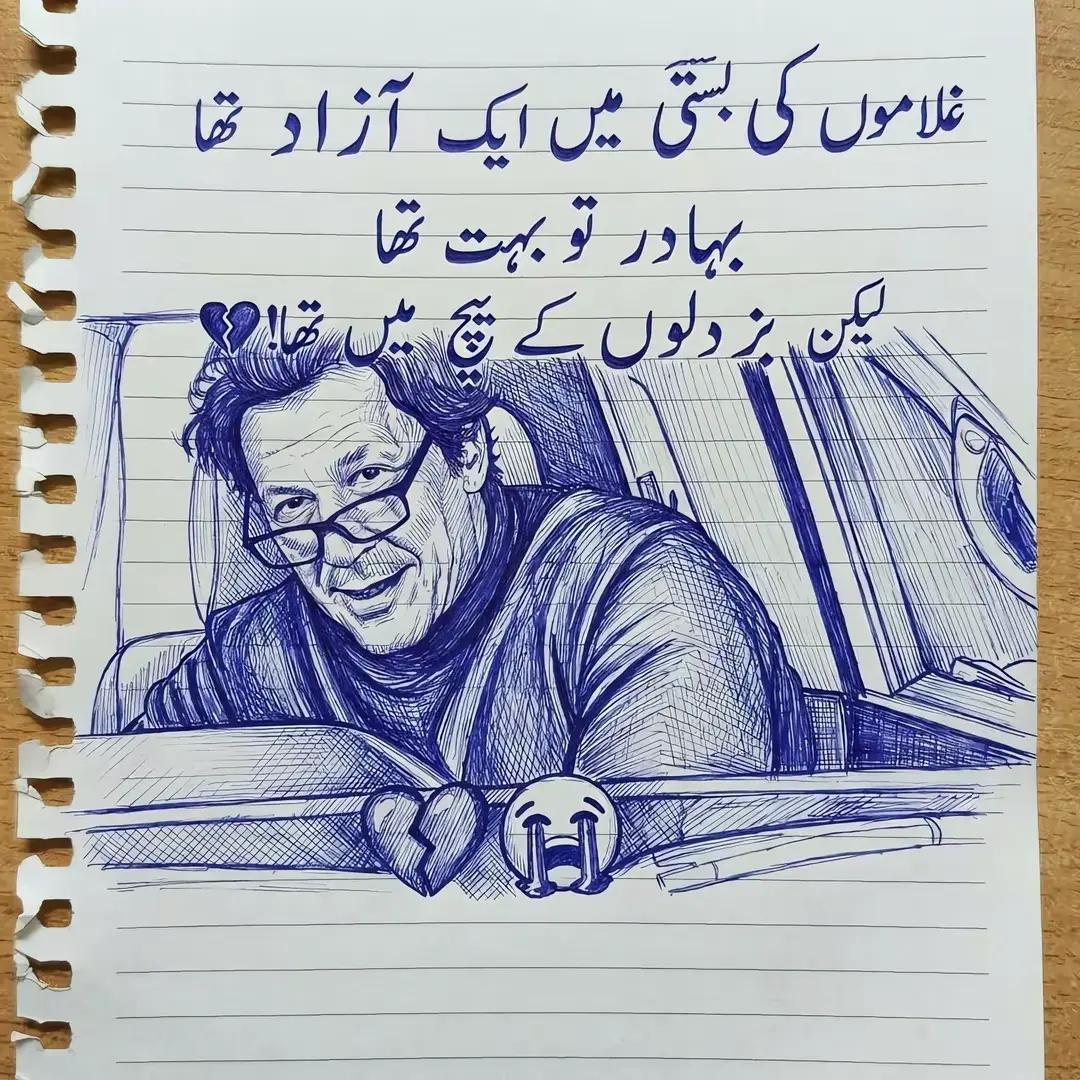 غلاموں کی بستی میں ایک آزاد تھا
بہادر تو بہت تھا
لیکن بزدلوں کے بیچ میں تھا!💔